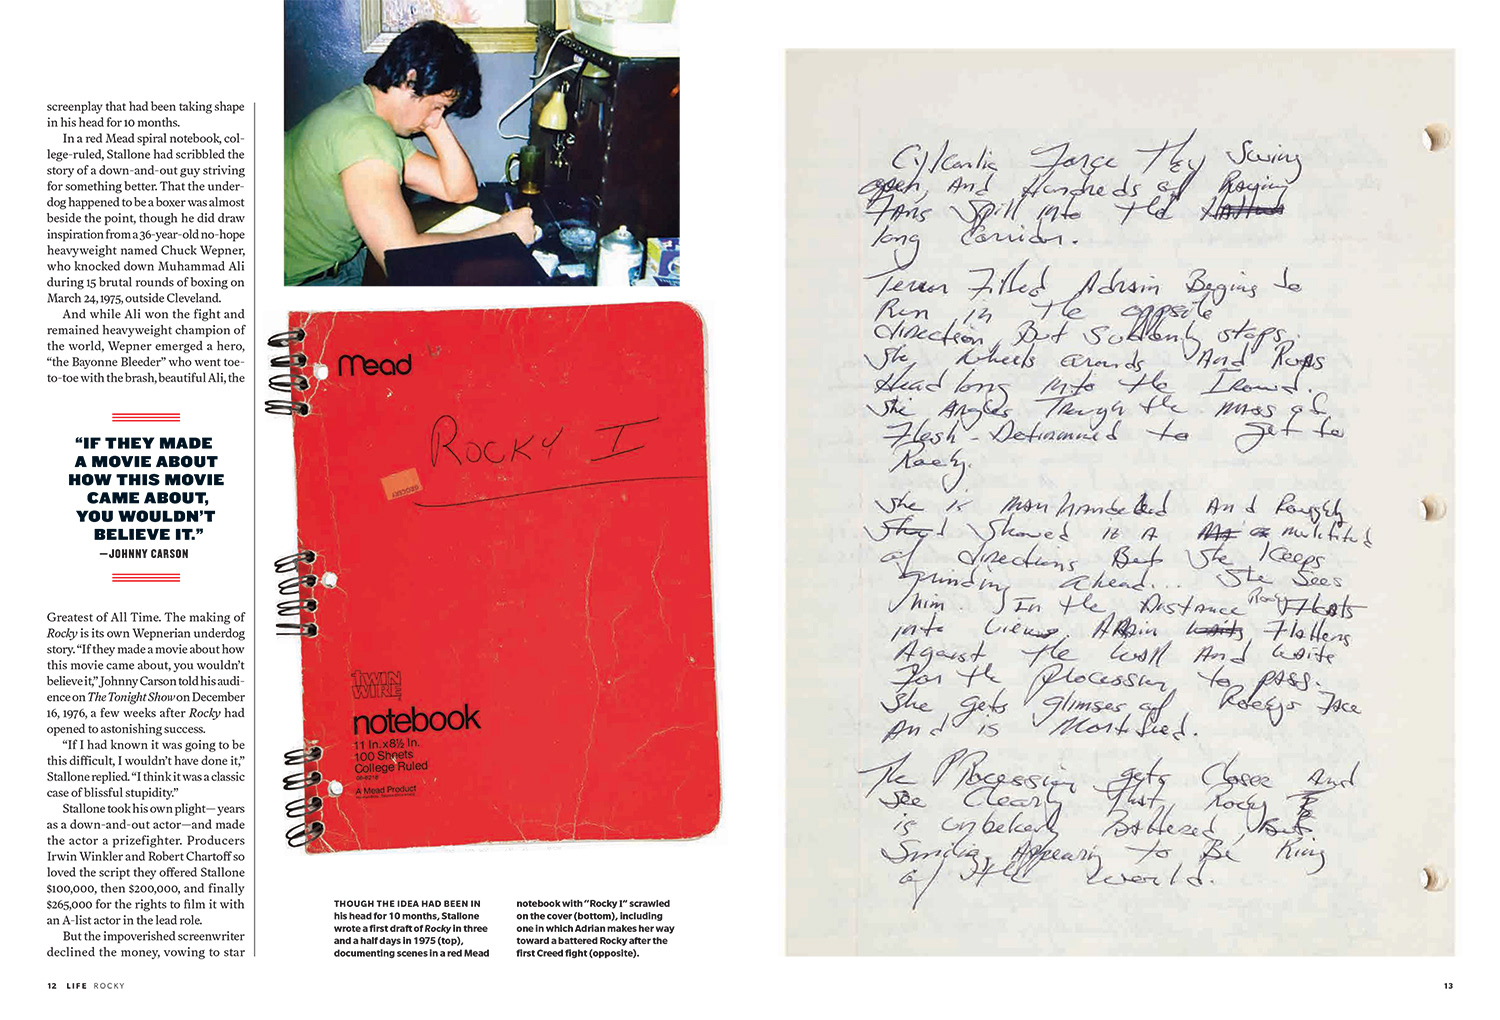 screenplay that had been taking shape
in his head for 10 months.
In a red Mead spiral notebook, col-
lege-ruled, Stallone had scribbled the
story of a down-and-out guy striving
for something better. That the under-
dog happened to be a boxer was almost
beside the point, though he did draw
inspiration from a 36-year-old no-hope
heavyweight named Chuck Wepner,
who knocked down Muhammad Ali
during 15 brutal rounds of boxing on
March 24, 1975, outside Cleveland.
And while Ali won the fight and
remained heavyweight champion of
the world, Wepner emerged a hero,
“the Bayonne Bleeder” who went toe-
to-toe with the brash, beautiful Ali, the
“IF THEY MADE
A MOVIE ABOUT
HOW THIS MOVIE
CAME ABOUT,
YOU WOULDN’T
BELIEVE IT.”
—JOHNNY CARSON
Greatest of All Time. The making of
Rocky is its own Wepnerian underdog
story. “If they made a movie about how
this movie came about, you wouldn’t
believe it,” Johnny Carson told his audi-
ence on The Tonight Show on December
16, 1976, a few weeks after Rocky had
opened to astonishing success.
“If I had known it was going to be
this difficult, I wouldn’t have done it,”
Stallone replied. “I think it was a classic
case of blissful stupidity.”
Stallone took his own plight—years
as a down-and-out actor—and made
the actor a prizefighter. Producers
Irwin Winkler and Robert Chartoff so
loved the script they offered Stallone
$100,000, then $200,000, and finally
$265,000 for the rights to film it with
an A-list actor in the lead role.
But the impoverished screenwriter
declined the money, vowing to star
Mead
ROCKY I
TWIN
WIRE
notebook
11 In. x 8½ In.
100 Sheets
College Ruled
A Mead Product
THOUGH THE IDEA HAD BEEN IN
his head for 10 months, Stallone
wrote a first draft of Rocky in three
and a half days in 1975 (top),
documenting scenes in a red Mead
notebook with “Rocky I” scrawled
on the cover (bottom), including
one in which Adrian makes her way
toward a battered Rocky after the
first Creed fight (opposite).
12 LIFE ROCKY
Force They Swing
open, And Hundreds of Raging
Fans Spill into the
long Corridor.
Terror Filled Adrain Begins to
Run in the oppsite
direction, But Suddenly stops.
She wheels around And Runs
Headlong into the Crowd.
She Angles Through the mass of
Flesh - Determined to get to
Rocky.
She is manhandeled And Roughly
Shoved in A multitud
of directions But She Keeps
grinding ahead... She Sees
him. In the Distance Rocky Floats
into view. Adrain Flattens
Against the wall And waits
For the Procession to pass.
She gets glimses of Rockys Face
And is Mortified.
The Procession gets Closer And
See Clearly That Rocky
is Battered, But
Smiling, Appearing to Be King
of the world.
13